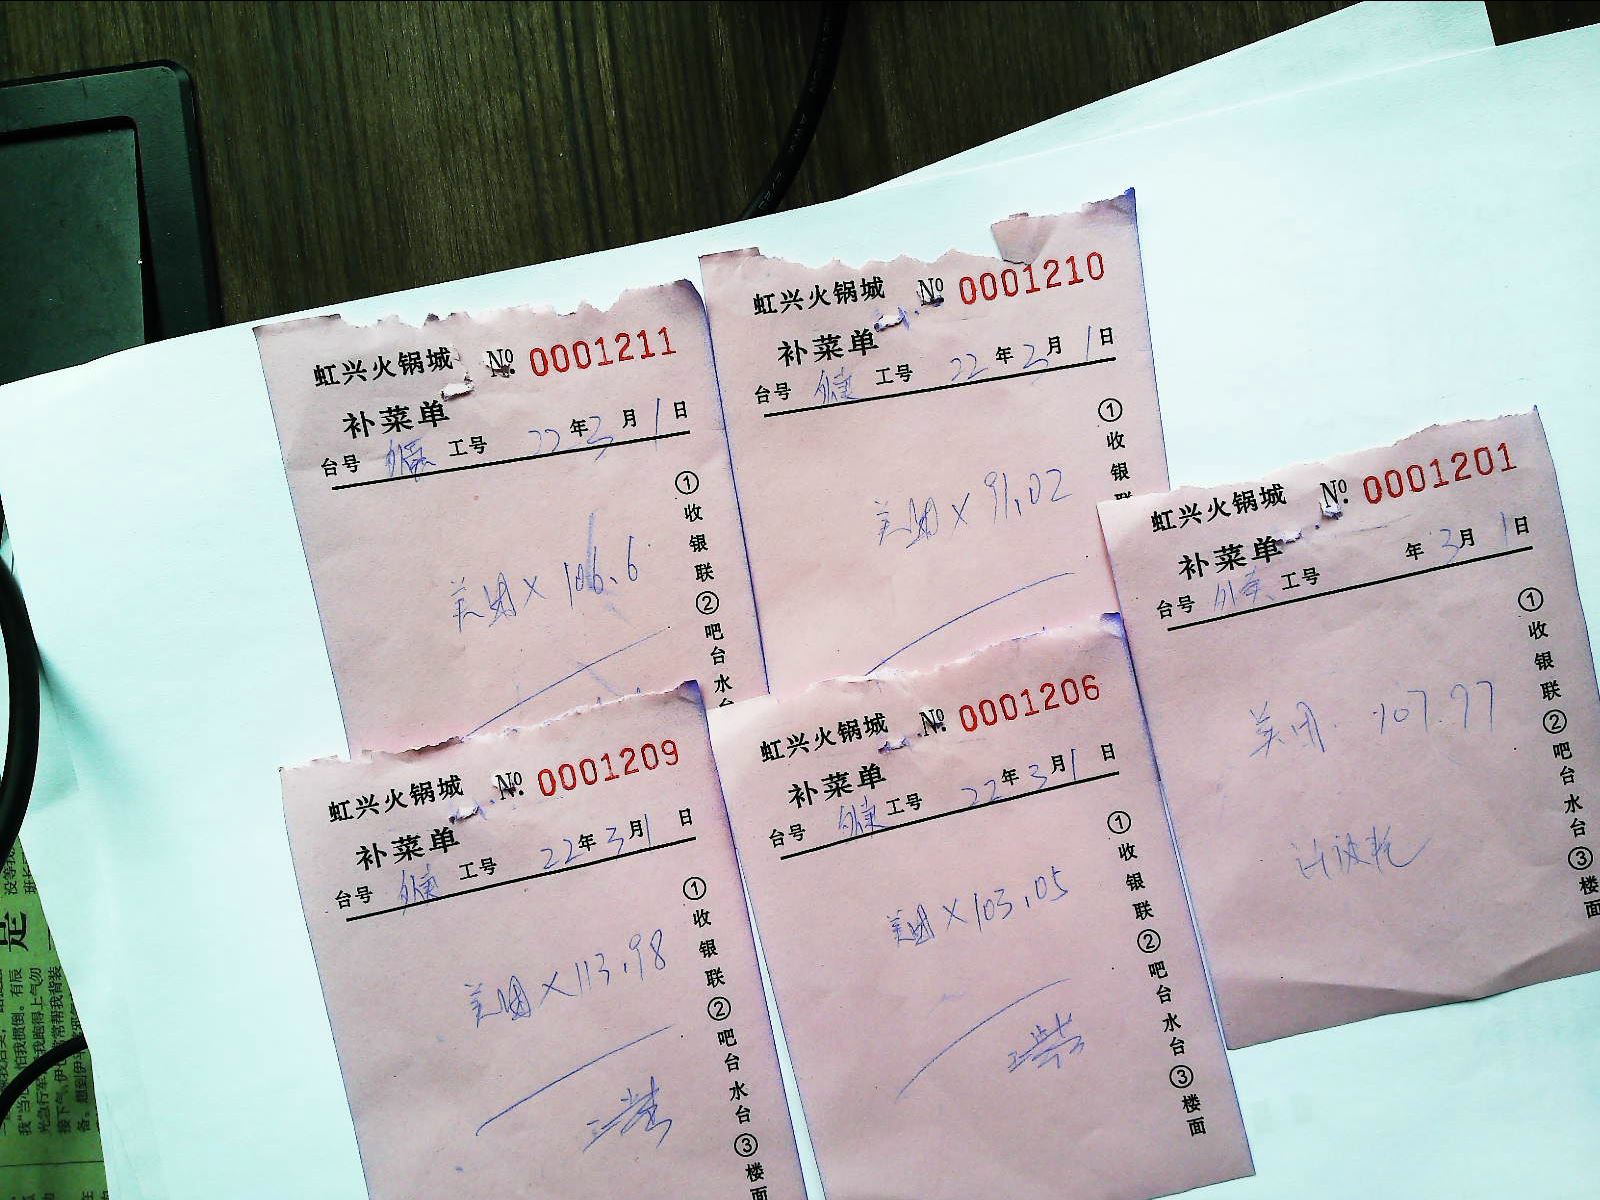 虹兴火锅城 № 0001211
补菜单
台号 外卖 工号 22年3月1日
美团 X 106.6
①收银联②吧台水
虹兴火锅城 № 0001210
补菜单
台号 外卖 工号 22年3月1日
美团 X 91.02
①收银联
虹兴火锅城 № 0001201
补菜单
台号 外卖 工号 年3月1日
美团 107.97
①收银联②吧台水台③楼面
虹兴火锅城 № 0001209
补菜单
台号 外卖 工号 22年3月1日
美团 X 113.98
①收银联②吧台水台③楼面
虹兴火锅城 № 0001206
补菜单
台号 外卖 工号 22年3月1日
美团 X 103.05
①收银联②吧台水台③楼面